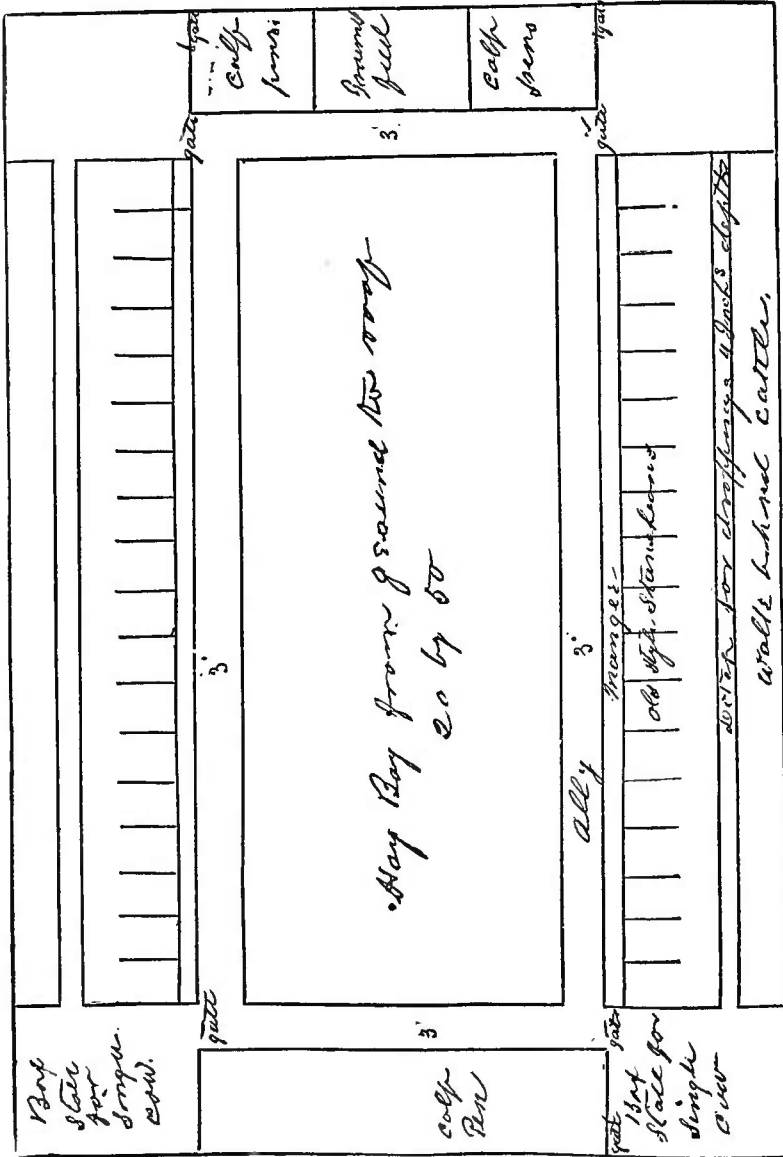 gate
calf
pens
Ground
feed
calf
pens
gate
gate
3'
gate
Hay Bay from ground to roof
20 by 50
3'
3'
Ally
Manger
Old Style Stanchions
for droppings 4 Inch's depth
walk behind cattle.
gate
3'
gate
gate
Box
Stall
for
Single
cow.
Calf
Pen
Box
Stall for
Single
Cow